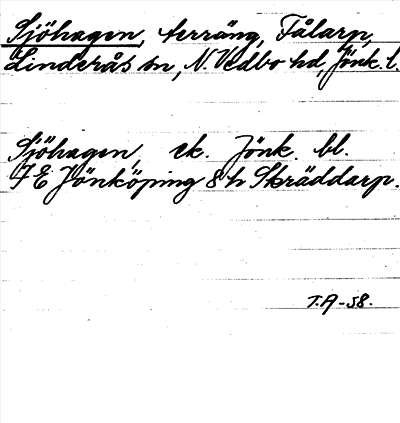 Sjöhagen, terräng, Fålarp,
Linderås sn, N. Vedbo hd, Jönk. l.
Sjöhagen, ek. Jönk. bl.
7 E Jönköping 8 h Skräddarp.
T.A -58.